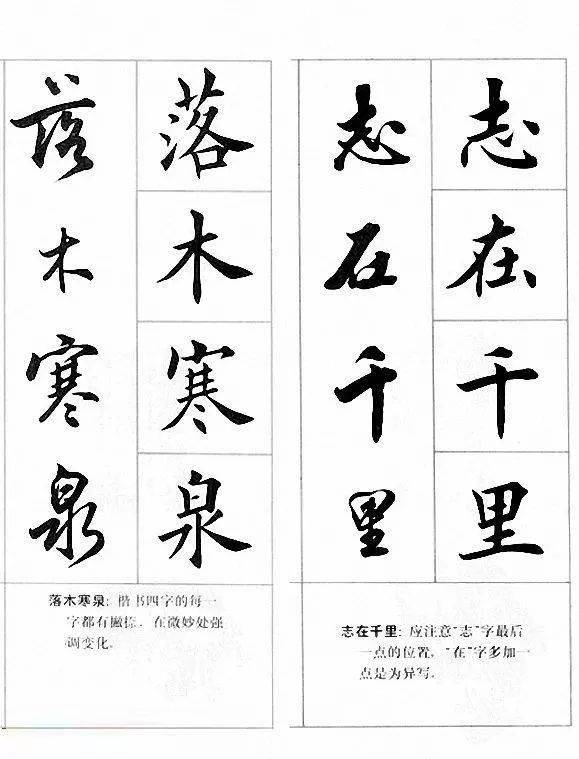 落木寒泉
落木寒泉
落木寒泉: 楷书四字的每一
字都有撇捺, 在微妙处强
调变化。
志在千里
志在千里
志在千里: 应注意“志”字最后
一点的位置, “在”字多加一
点是为异写。